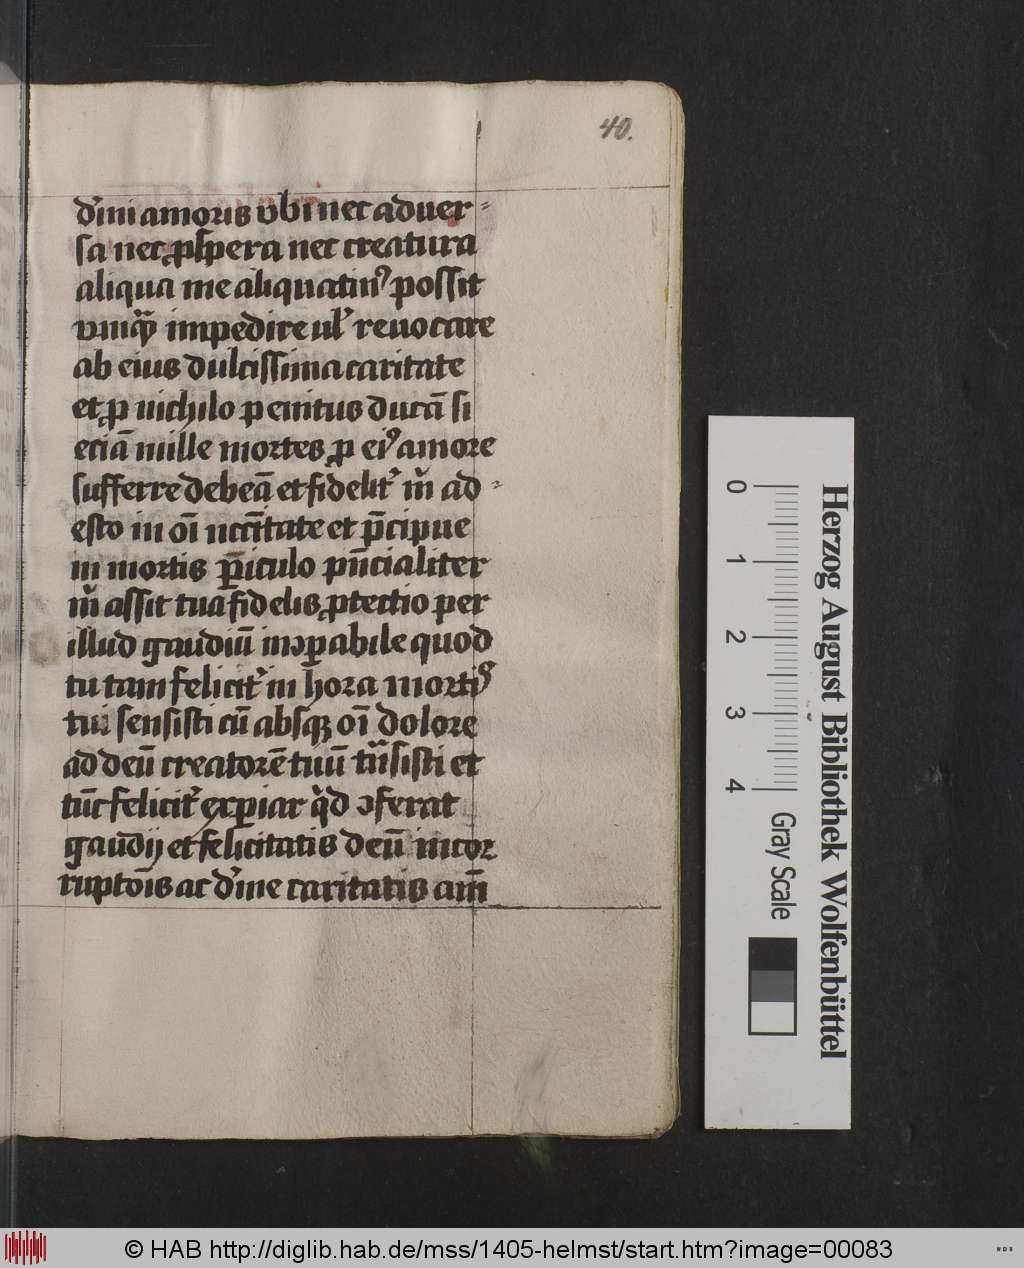 40.
d'ini amoris vbi nec aduer-
sa nec ꝓspera nec creatura
aliqua me aliquatinꝰ possit
vmꝙᷓ impedire ul' reuocare
ab eius dulcissima caritate
et ꝓ nichilo penitus ducā si
eciā mille mortes ꝓ eiꝰ amore
sufferre debeā et fidelit' m̄ ad-
esto in oī nccītate et p̄cipue
in mortis ꝑiculo pn̄cialiter
m̄ assit tua fidelis ꝓtectio per
illud gaudiū inↄꝑabile quod
tu tam felicit' in hora mortiꝰ
tui sensisti cū absqꝫ oī dolore
ad deū creatorē tuū tn̄sisti et
tūc felicit' exꝑiar q̄d ↄferat
gaudij et felicitatis deū incor
ruptōis ac d'ine caritatis am̄
0 1 2 3 4
Gray Scale
Herzog August Bibliothek Wolfenbüttel
© HAB http://diglib.hab.de/mss/1405-helmst/start.htm?image=00083